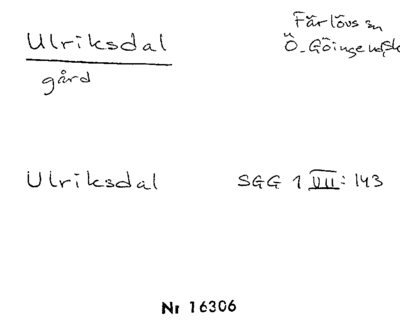 Ulriksdal
gård
Färlövs sn
Ö. Göinge hd, Sk
Ulriksdal SGG 1 VII: 143
Nr 16306